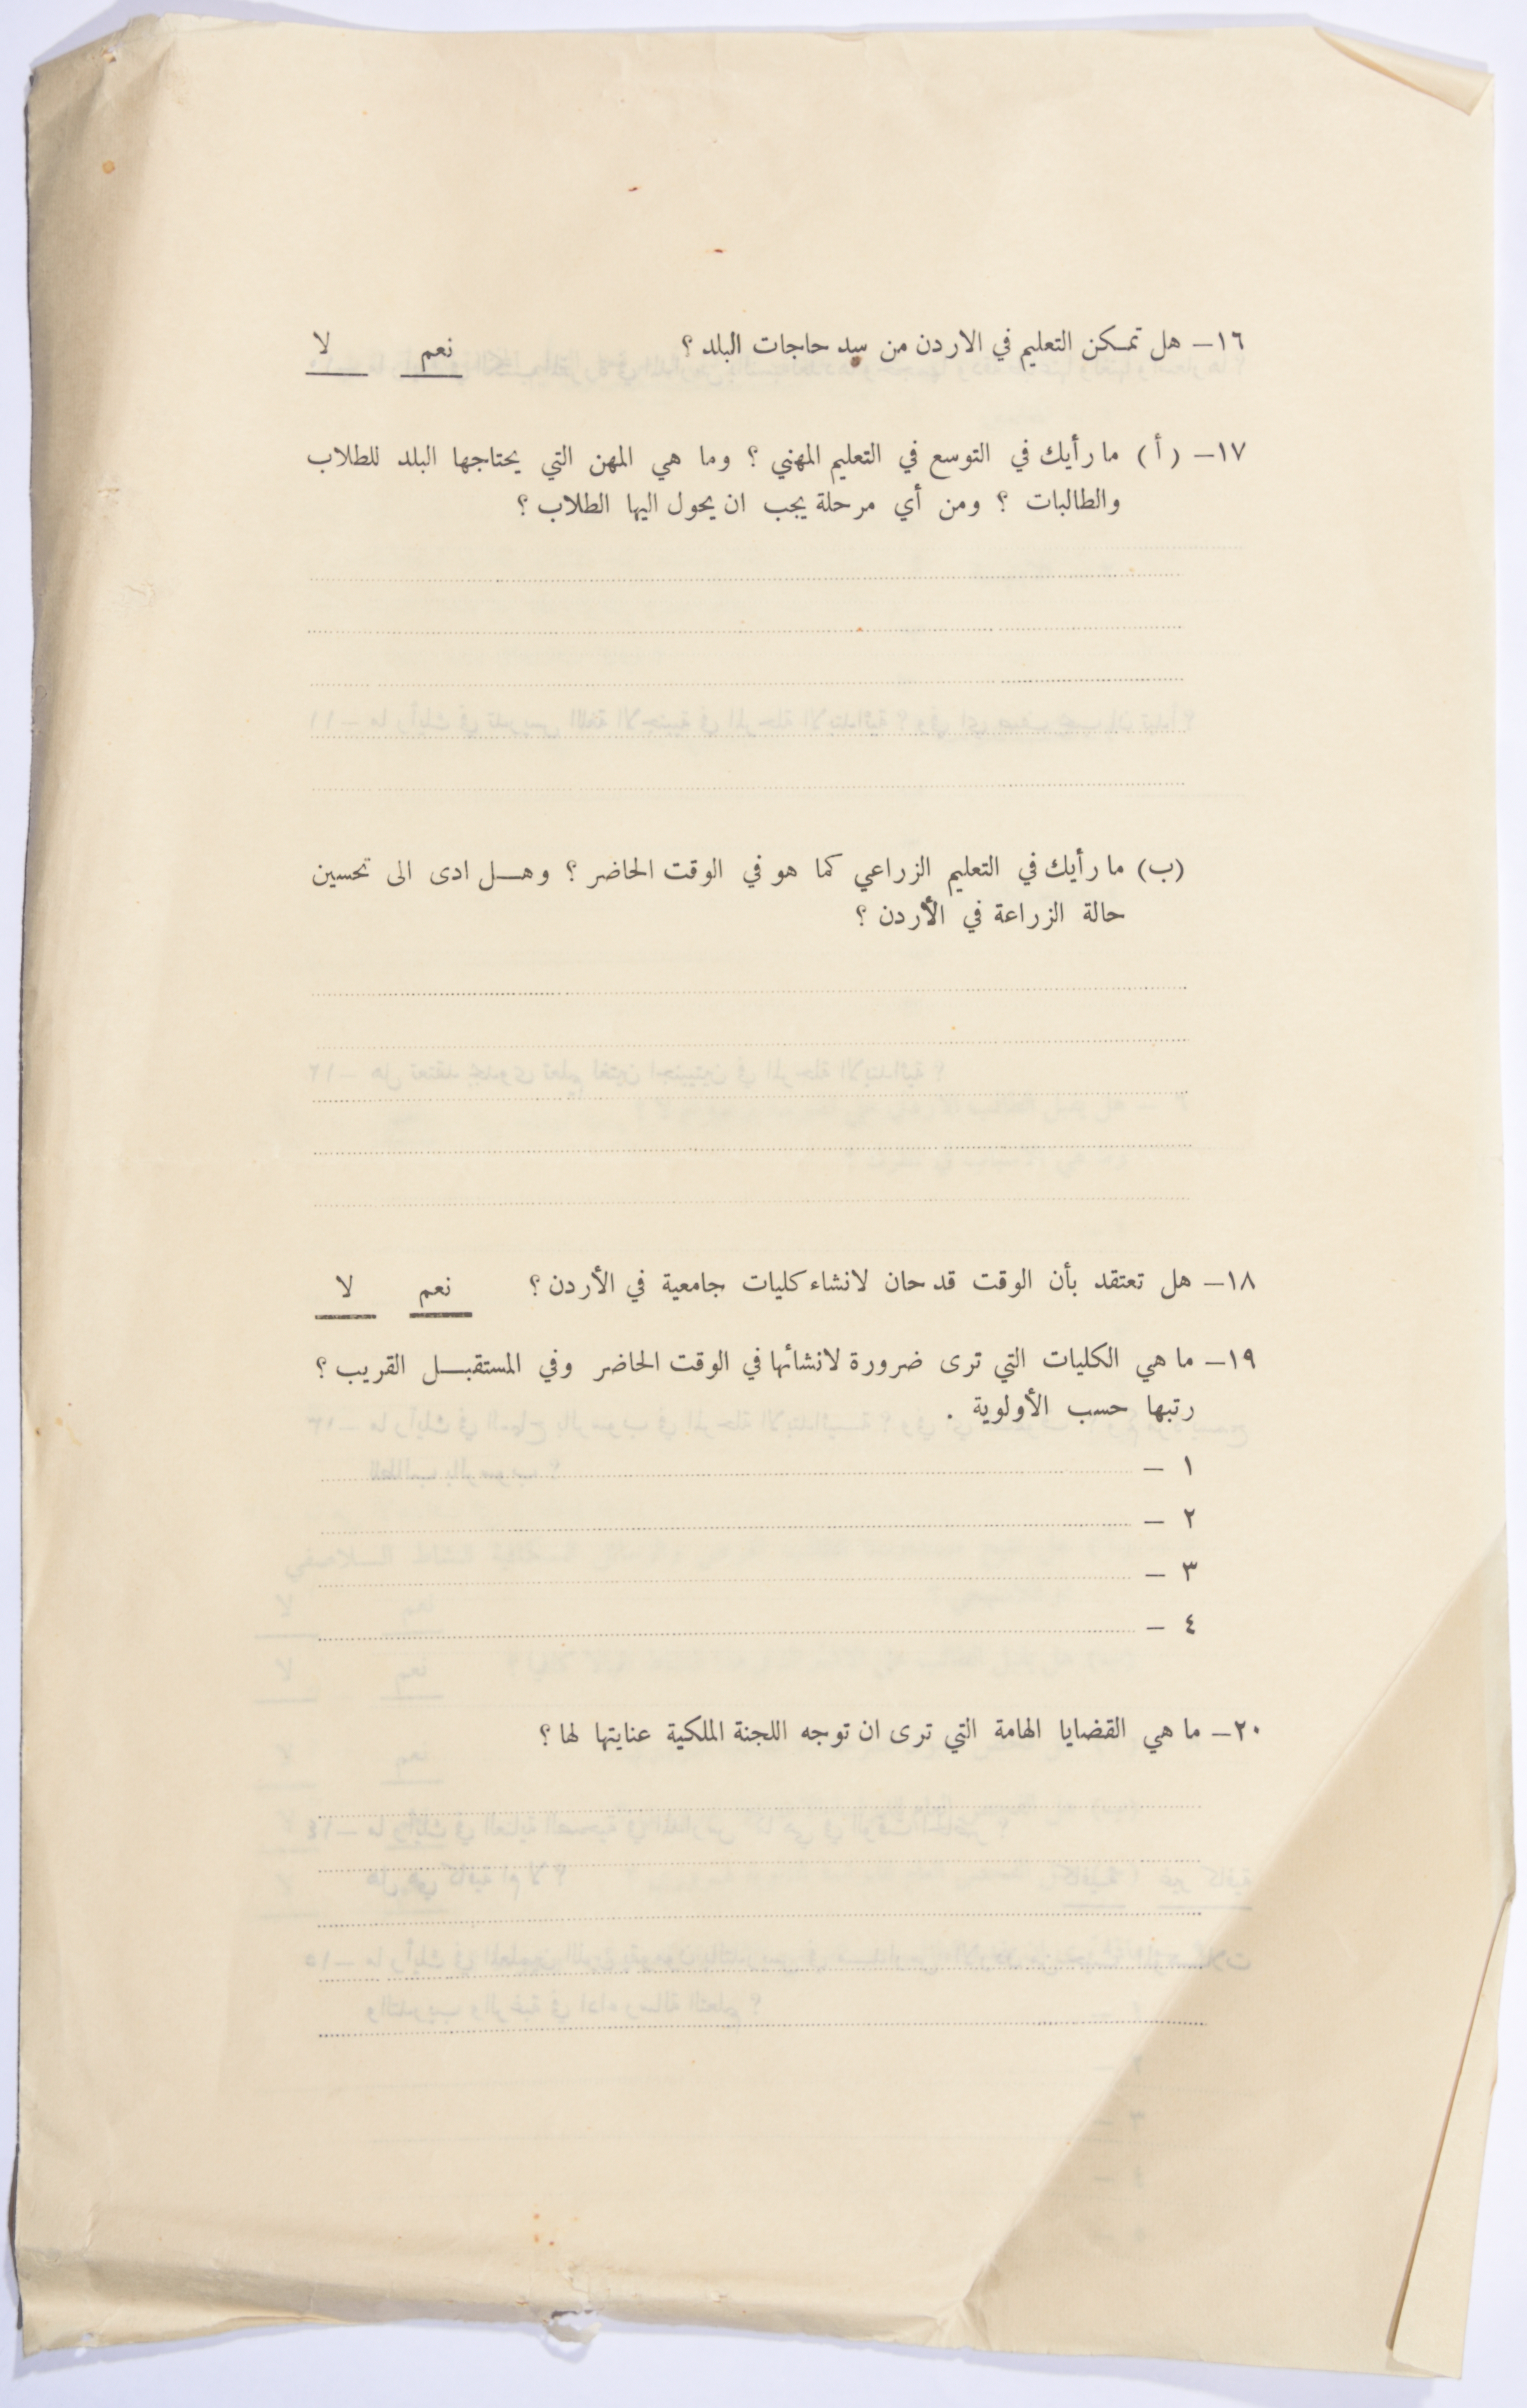 ١٦– هل تمكن التعليم في الاردن من سد حاجات البلد ؟ نعم لا
١٧– (أ) ما رأيك في التوسع في التعليم المهني ؟ وما هي المهن التي يحتاجها البلد للطلاب
والطالبات ؟ ومن أي مرحلة يجب ان يحول اليها الطلاب ؟
(ب) ما رأيك في التعليم الزراعي كما هو في الوقت الحاضر ؟ وهل ادى الى تحسين
حالة الزراعة في الأردن ؟
١٨– هل تعتقد بأن الوقت قد حان لانشاء كليات جامعية في الأردن ؟ نعم لا
١٩– ما هي الكليات التي ترى ضرورة لانشائها في الوقت الحاضر وفي المستقبل القريب ؟
رتبها حسب الأولوية .
١ –
٢ –
٣ –
٤ –
٢٠– ما هي القضايا الهامة التي ترى ان توجه اللجنة الملكية عنايتها لها ؟